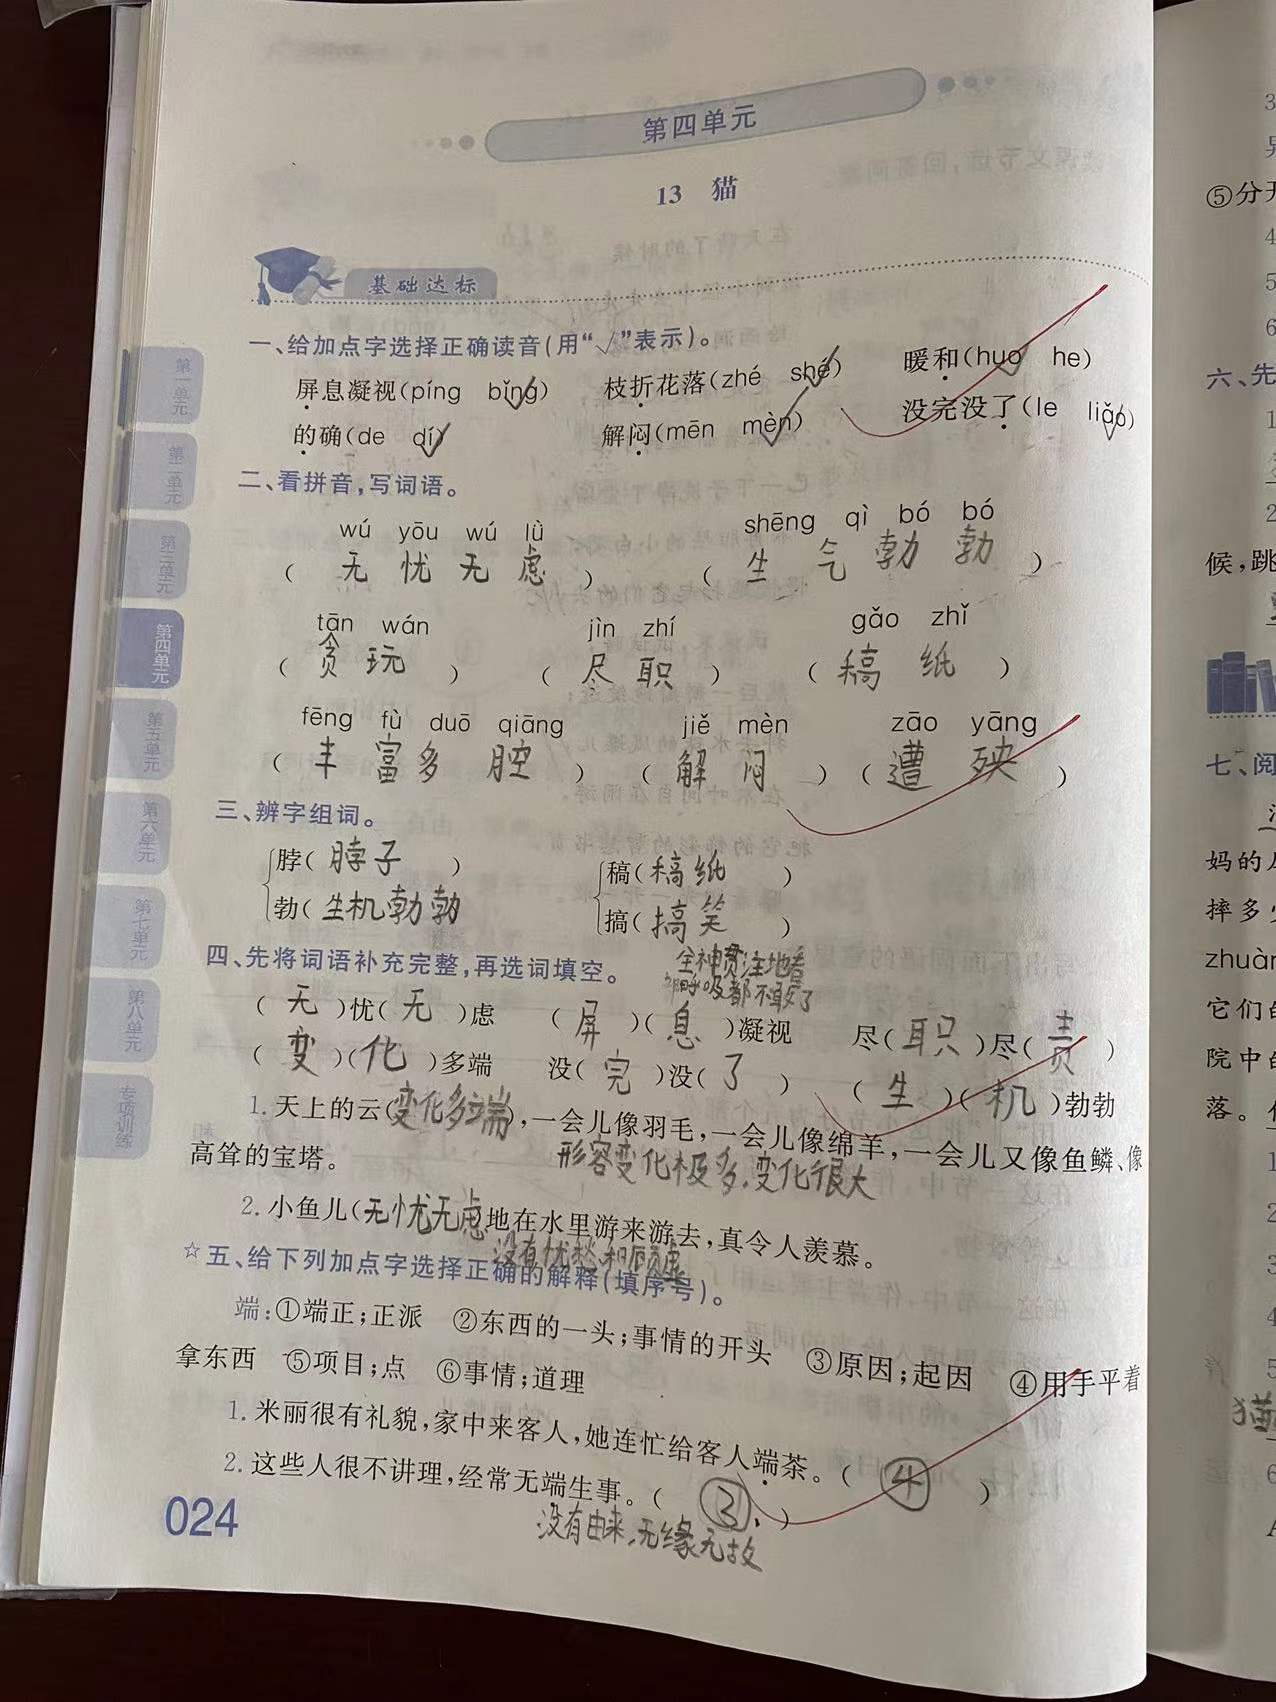 第四单元
13 猫
基础达标
一、给加点字选择正确读音(用“√”表示)。
屏息凝视(píng bǐng) 枝折花落(zhé shé) 暖和(huo he)
的确(de dí) 解闷(mēn mèn) 没完没了(le liǎo)
二、看拼音,写词语。
wú yōu wú lǜ shēng qì bó bó
(无忧无虑) (生气勃勃)
tān wán jìn zhí gǎo zhǐ
(贪玩) (尽职) (稿纸)
fēng fù duō qiāng jiě mèn zāo yāng
(丰富多腔) (解闷) (遭殃)
三、辨字组词。
脖(脖子) 稿(稿纸)
勃(生机勃勃) 搞(搞笑)
四、先将词语补充完整,再选词填空。
全神贯注地看
呼吸都不敢了
(无)忧(无)虑 (屏)(息)凝视 尽(职)尽(责)
(变)(化)多端 没(完)没(了) (生)(机)勃勃
1.天上的云(变化多端),一会儿像羽毛,一会儿像绵羊,一会儿又像鱼鳞、像
高耸的宝塔。
形容变化极多,变化很大
2.小鱼儿(无忧无虑地在水里游来游去,真令人羡慕。
没有忧愁和顾虑
☆五、给下列加点字选择正确的解释(填序号)。
端:①端正;正派 ②东西的一头;事情的开头 ③原因;起因 ④用手平着
拿东西 ⑤项目;点 ⑥事情;道理
1.米丽很有礼貌,家中来客人,她连忙给客人端茶。(④)
2.这些人很不讲理,经常无端生事。(③)
没有由来,无缘无故
024
第一单元
第二单元
第三单元
第四单元
第五单元
第六单元
第七单元
第八单元
专项训练
3
⑤分开
4
5
6
六、先
1
2
候,跳
七、阅
妈的
摔多少
zhuàn
它们的
院中的
落。
1
2
3
4
5
猫
6